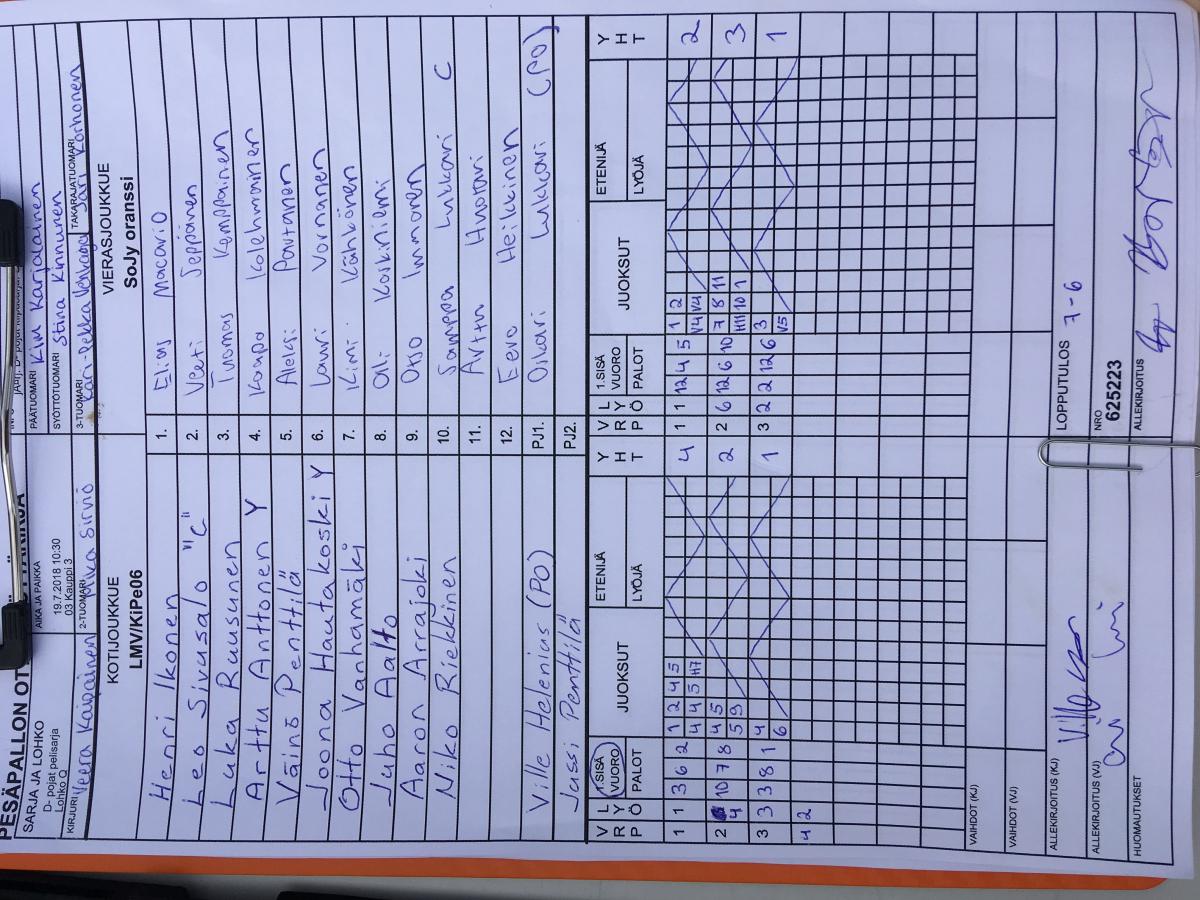 PESÄPALLON OT
SARJA JA LOHKO
D- pojat pelisarja
Lohko Q
AIKA JA PAIKKA
19.7.2018 10:30
03 Kauppi 3
PÄÄTUOMARI Kim Karjalainen
SYÖTTÖTUOMARI Stina Kinnunen
KIRJURI Veera Kaipainen
2-TUOMARI Mika Sirviö
3-TUOMARI Kari-Pekka
TAKARAJATUOMARI Sari Korhonen
KOTIJOUKKUE
LMV/KiPe06
VIERASJOUKKUE
SoJy oranssi
Henri Ikonen 1. Elias Macario
Leo Sivusalo "C" 2. Veeti Seppänen
Luka Ruusunen 3. Tuomas Kemppainen
Arttu Anttonen Y 4. Kaapo Kolehmainen
Väinö Penttilä 5. Aleksi Pautanen
Joona Hautakoski Y 6. Lauri Vornanen
Otto Vanhamäki 7. Kimi Kähkönen
Juho Aalto 8. Olli Koskiniemi
Aaron Arrajoki 9. Otso Immonen
Niko Riekkinen 10. Samppa Lukkari C
11. Arttu Huotari
12. Eevo Heikkinen
Ville Helenius (PO) PJ1. Oskari Lukkari (PO)
Jussi Penttilä PJ2.
V R P L Y Ö 1.SISÄ VUORO PALOT JUOKSUT ETENIJÄ LYÖJÄ Y H T
V R P L Y Ö 1.SISÄ VUORO PALOT JUOKSUT ETENIJÄ LYÖJÄ Y H T
1 1 3 6 2 1 2 4 5 4
4 4 5 H7
1 1 12 4 5 1 2 2
V4 V4
2 4 10 7 8 4 5 2
5 9
2 6 12 6 10 7 8 11 3
H11 10 1
3 3 3 8 1 4 1
6
3 2 2 12 6 3 1
V5
4 2
VAIHDOT (KJ)
VAIHDOT (VJ)
ALLEKIRJOITUS (KJ)
LOPPUTULOS 7-6
ALLEKIRJOITUS (VJ)
NRO
625223
HUOMAUTUKSET
ALLEKIRJOITUS